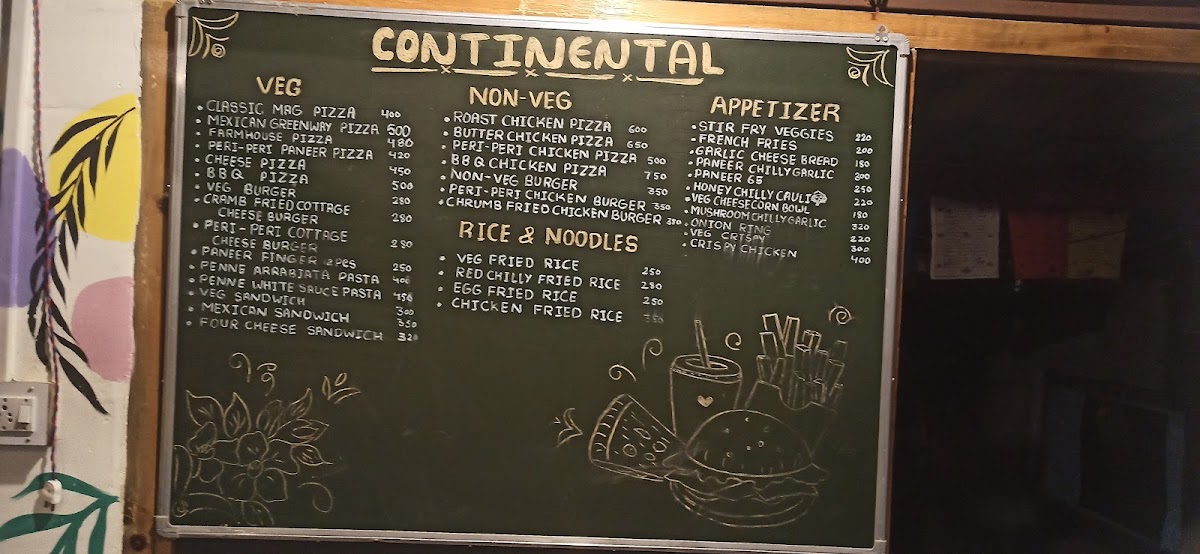 CONTINENTAL
VEG
CLASSIC MAG PIZZA 400
MEXICAN GREENWAY PIZZA 500
FARMHOUSE PIZZA 480
PERI-PERI PANEER PIZZA 420
CHEESE PIZZA 450
BBQ PIZZA 500
VEG BURGER 280
CRAMB FRIED COTTAGE
CHEESE BURGER 280
PERI-PERI COTTAGE
CHEESE BURGER 280
PANEER FINGER 12PCS 250
PENNE ARRABJATA PASTA 400
PENNE WHITE SAUCE PASTA 450
VEG SANDWICH 300
MEXICAN SANDWICH 350
FOUR CHEESE SANDWICH 320
NON-VEG
ROAST CHICKEN PIZZA 600
BUTTER CHICKEN PIZZA 650
PERI-PERI CHICKEN PIZZA 500
BBQ CHICKEN PIZZA 750
NON-VEG BURGER 350
PERI-PERI CHICKEN BURGER 350
CHRUMB FRIED CHICKEN BURGER
RICE & NOODLES
VEG FRIED RICE 250
RED CHILLY FRIED RICE 280
EGG FRIED RICE 250
CHICKEN FRIED RICE
APPETIZER
STIR FRY VEGGIES 220
FRENCH FRIES 200
GARLIC CHEESE BREAD 180
PANEER CHILLY GARLIC 300
PANEER 65 250
HONEY CHILLY CAULI 220
VEG CHEESE CORN BOWL 180
MUSHROOM CHILLY GARLIC 320
ONION RING 220
VEG CRISPY 300
CRISPY CHICKEN 400